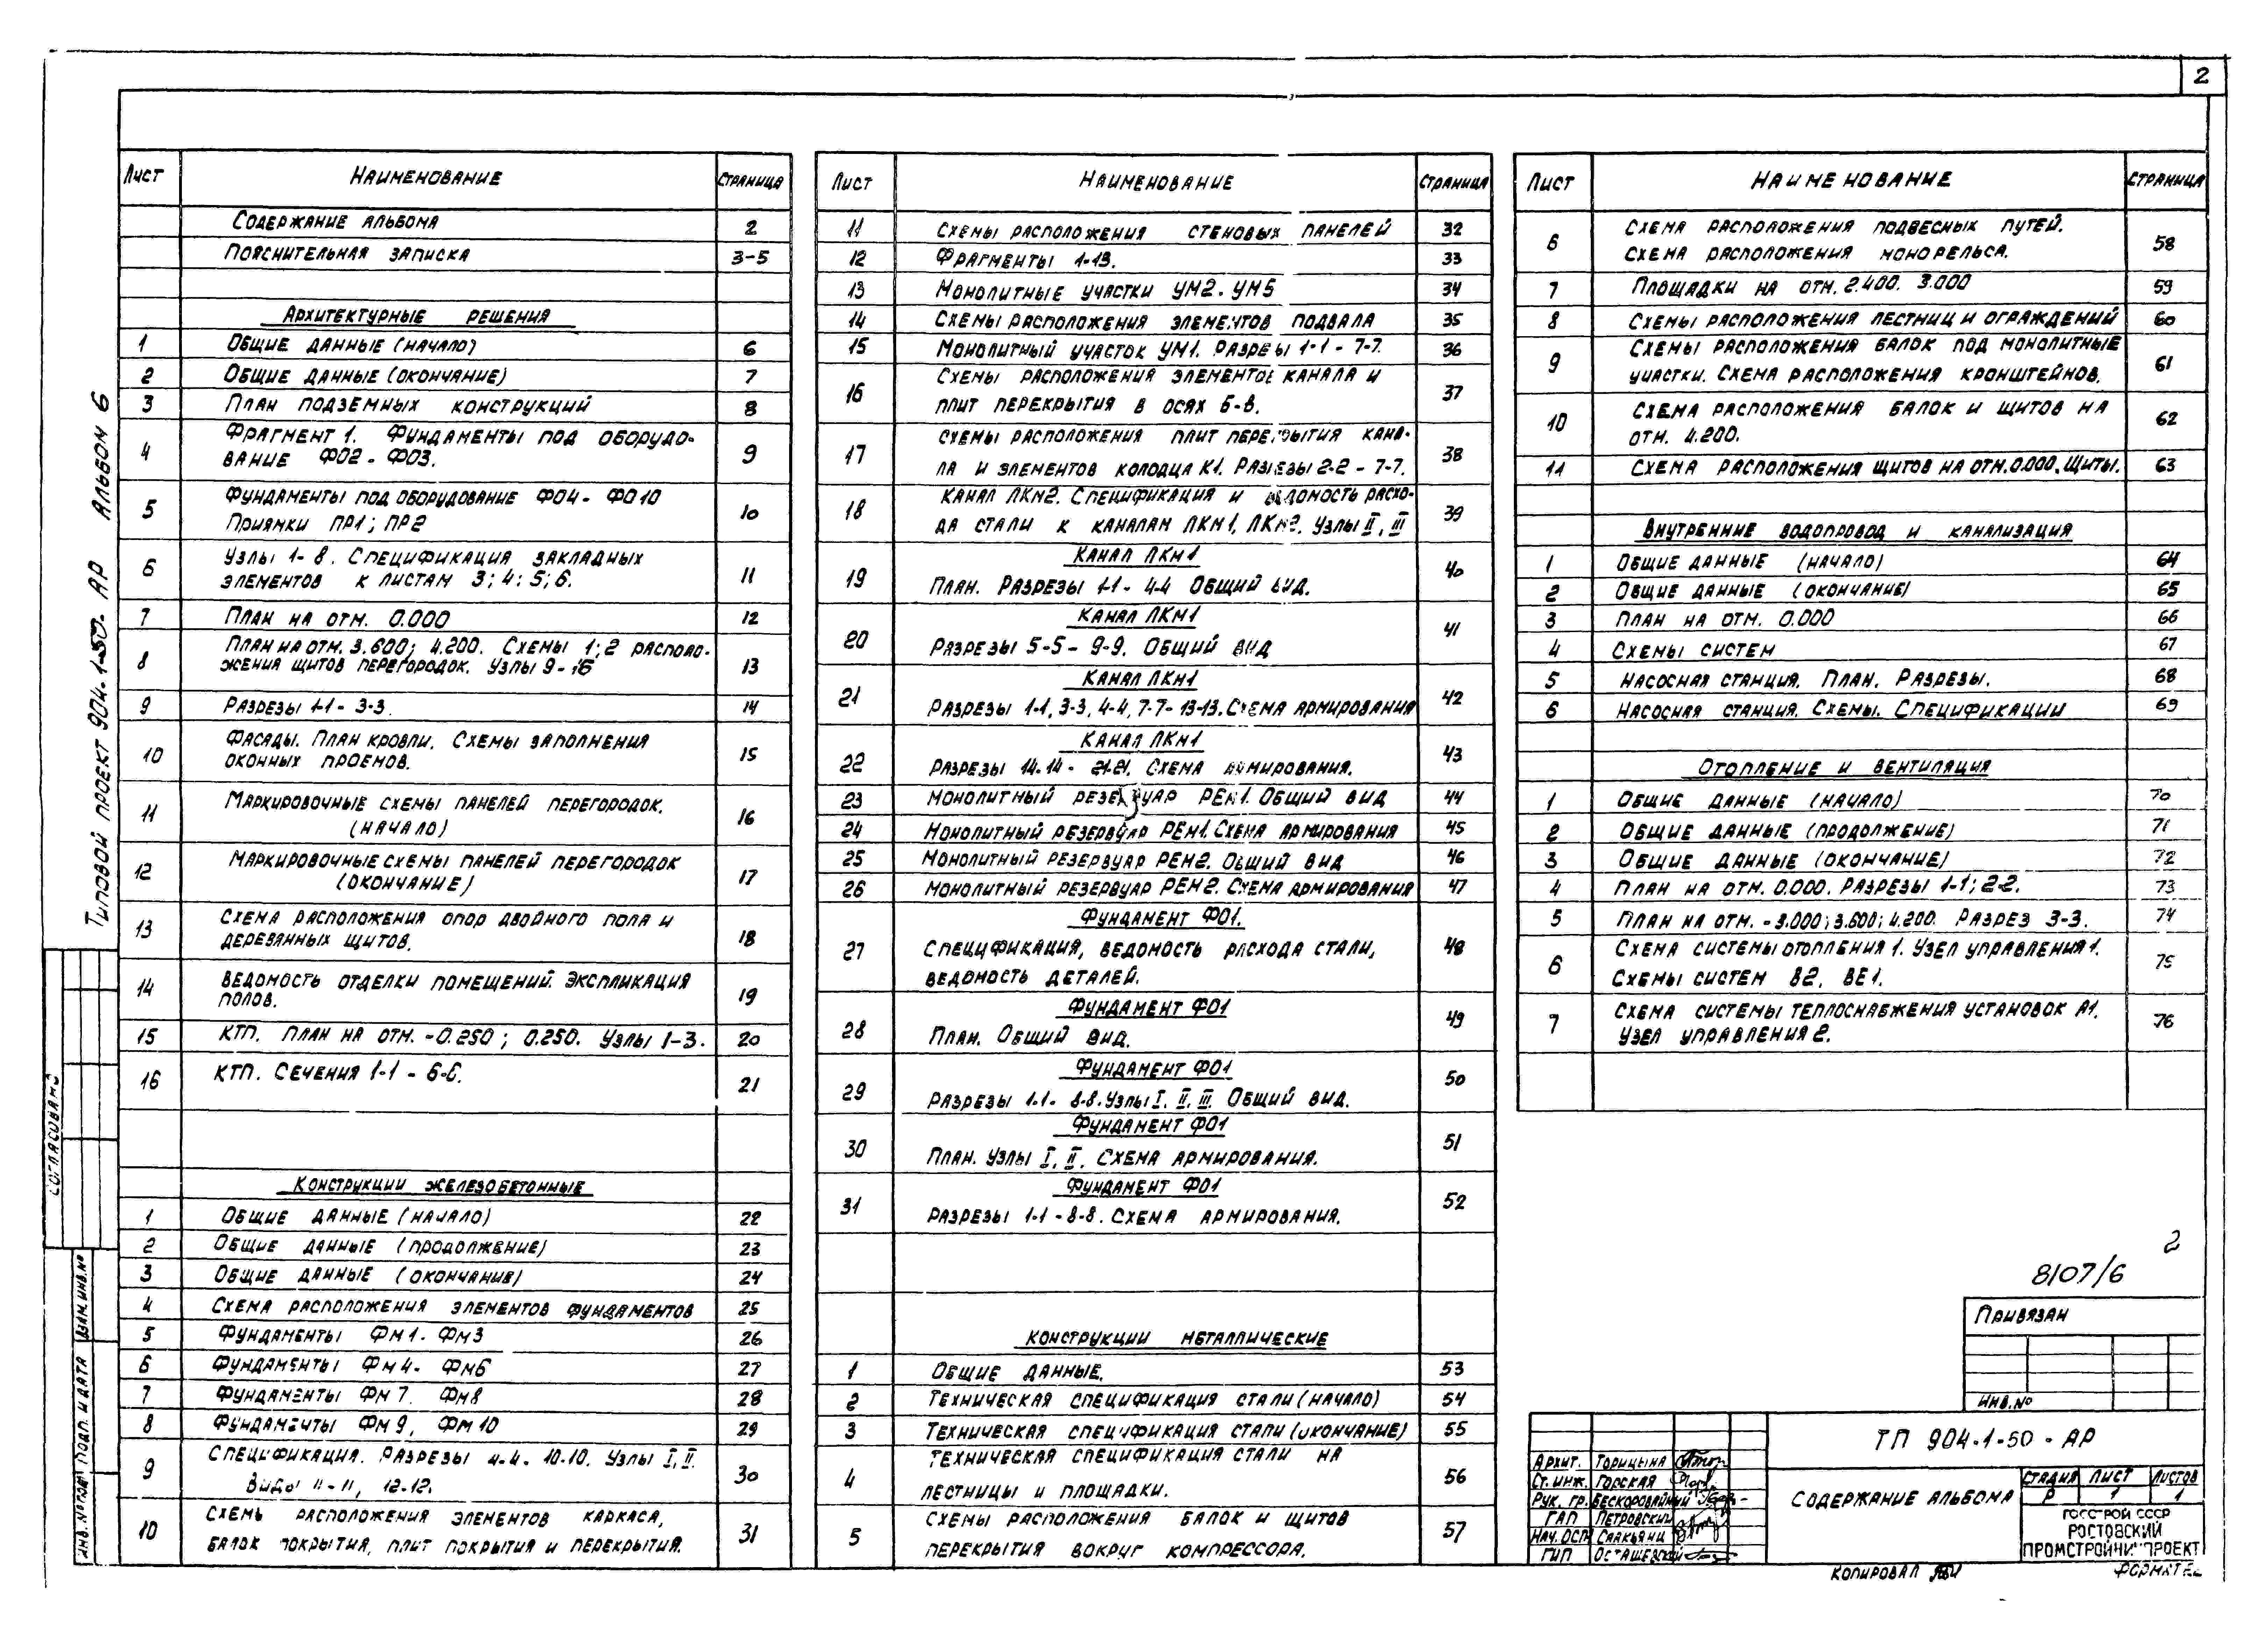 2
Лист Наименование Страница
Содержание альбома 2
Пояснительная записка 3-5
Архитектурные решения
1 Общие данные (начало) 6
2 Общие данные (окончание) 7
3 План подземных конструкций 8
4 Фрагмент 1. Фундаменты под оборудо-
вание Ф02 - Ф03. 9
5 Фундаменты под оборудование Ф04 - Ф010
Приямки ПР1; ПР2 10
6 Узлы 1-8. Спецификация закладных
элементов к листам 3; 4; 5; 6. 11
7 План на отм. 0.000 12
8 План на отм. 3.600; 4.200. Схемы 1; 2 располо-
жения щитов перегородок. Узлы 9-16 13
9 Разрезы 1-1 - 3-3. 14
10 Фасады. План кровли. Схемы заполнения
оконных проемов. 15
11 Маркировочные схемы панелей перегородок.
(начало) 16
12 Маркировочные схемы панелей перегородок
(окончание) 17
13 Схема расположения опор двойного пола и
деревянных щитов. 18
14 Ведомость отделки помещений. Экспликация
полов. 19
15 КТП. План на отм. -0.250; 0.250. Узлы 1-3. 20
16 КТП. Сечения 1-1 - 6-6. 21
Конструкции железобетонные
1 Общие данные (начало) 22
2 Общие данные (продолжение) 23
3 Общие данные (окончание) 24
4 Схема расположения элементов фундаментов 25
5 Фундаменты ФМ1. ФМ3 26
6 Фундаменты ФМ4- ФМ6 27
7 Фундаменты ФМ7. ФМ8 28
8 Фундаменты ФМ9, ФМ10 29
9 Спецификация. Разрезы 4-4. 10-10. Узлы I, II.
Виды 11-11, 12-12. 30
10 Схемы расположения элементов каркаса,
балок покрытия, плит покрытия и перекрытия. 31
Лист Наименование Страница
11 Схемы расположения стеновых панелей 32
12 Фрагменты 1-13. 33
13 Монолитные участки УМ2. УМ5 34
14 Схемы расположения элементов подвала 35
15 Монолитный участок УМ1. Разрезы 1-1 - 7-7. 36
16 Схемы расположения элементов канала и
плит перекрытия в осях Б-В. 37
17 Схемы расположения плит перекрытия кана-
ла и элементов колодца К1. Разрезы 2-2 - 7-7. 38
18 Канал ЛКМ2. Спецификация и ведомость расхо-
да стали к каналам ЛКМ1, ЛКМ2. Узлы II, III 39
Канал ЛКМ1
19 План. Разрезы 1-1 - 4-4 Общий вид. 40
Канал ЛКМ1
20 Разрезы 5-5 - 9-9. Общий вид 41
Канал ЛКМ1
21 Разрезы 1-1, 3-3, 4-4, 7-7 - 13-13. Схема армирования 42
Канал ЛКМ1
22 Разрезы 14-14 - 21-21. Схема армирования. 43
23 Монолитный резервуар РЕМ1. Общий вид 44
24 Монолитный резервуар РЕМ1. Схема армирования 45
25 Монолитный резервуар РЕМ2. Общий вид 46
26 Монолитный резервуар РЕМ2. Схема армирования 47
Фундамент Ф01.
27 Спецификация, ведомость расхода стали,
ведомость деталей. 48
Фундамент Ф01
28 План. Общий вид. 49
Фундамент Ф01
29 Разрезы 1-1- 8-8. Узлы I, II, III. Общий вид. 50
Фундамент Ф01
30 План. Узлы I, II. Схема армирования. 51
Фундамент Ф01
31 Разрезы 1-1 - 8-8. Схема армирования. 52
Конструкции металлические
1 Общие данные. 53
2 Техническая спецификация стали (начало) 54
3 Техническая спецификация стали (окончание) 55
4 Техническая спецификация стали на
лестницы и площадки. 56
5 Схемы расположения балок и щитов
перекрытия вокруг компрессора. 57
Лист Наименование Страница
6 Схема расположения подвесных путей.
Схема расположения монорельса. 58
7 Площадки на отм. 2.400. 3.000 59
8 Схемы расположения лестниц и ограждений 60
9 Схемы расположения балок под монолитные
участки. Схема расположения кронштейнов. 61
10 Схема расположения балок и щитов на
отм. 4.200. 62
11 Схема расположения щитов на отм. 0.000. Щиты. 63
Внутренние водопровод и канализация
1 Общие данные (начало) 64
2 Общие данные (окончание) 65
3 План на отм. 0.000 66
4 Схемы систем 67
5 Насосная станция. План. Разрезы. 68
6 Насосная станция. Схемы. Спецификации 69
Отопление и вентиляция
1 Общие данные (начало) 70
2 Общие данные (продолжение) 71
3 Общие данные (окончание) 72
4 План на отм. 0.000. Разрезы 1-1; 2-2. 73
5 План на отм. -3.000; 3.600; 4.200. Разрез 3-3. 74
6 Схема системы отопления 1. Узел управления 1.
Схемы систем В2, ВЕ1. 75
7 Схема системы теплоснабжения установок А1.
Узел управления 2. 76
2
8107/6
Привязан
Инв. №
ТП 904-1-50 - АР
Содержание альбома
Стадия Лист Листов
Р 1 1
Госстрой СССР
Ростовский
Промстройниипроект
Архит. Торицына
Ст. инж. Горская
Рук. гр. Бескоровайный
ГАП Петровский
Нач. осп Саакьянц
ГИП Осташевский
Копировал
Формат
Типовой проект 904-1-50- АР Альбом 6
Согласовано
Взам. инв. №
Подп. и дата
Инв. № подл